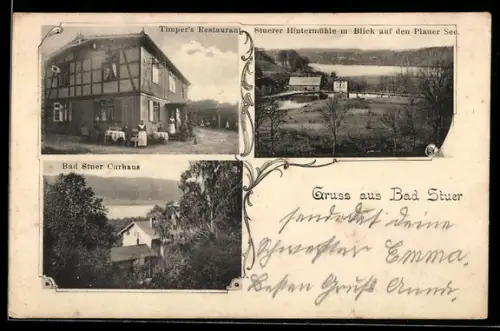 Timper's Restaurant
Stuerer Hintermühle m Blick auf den Plauer See.
Bad Stuer Curhaus
Gruss aus Bad Stuer
sendet dir deine
Schwester Emma.
Besten Gruß Anna.